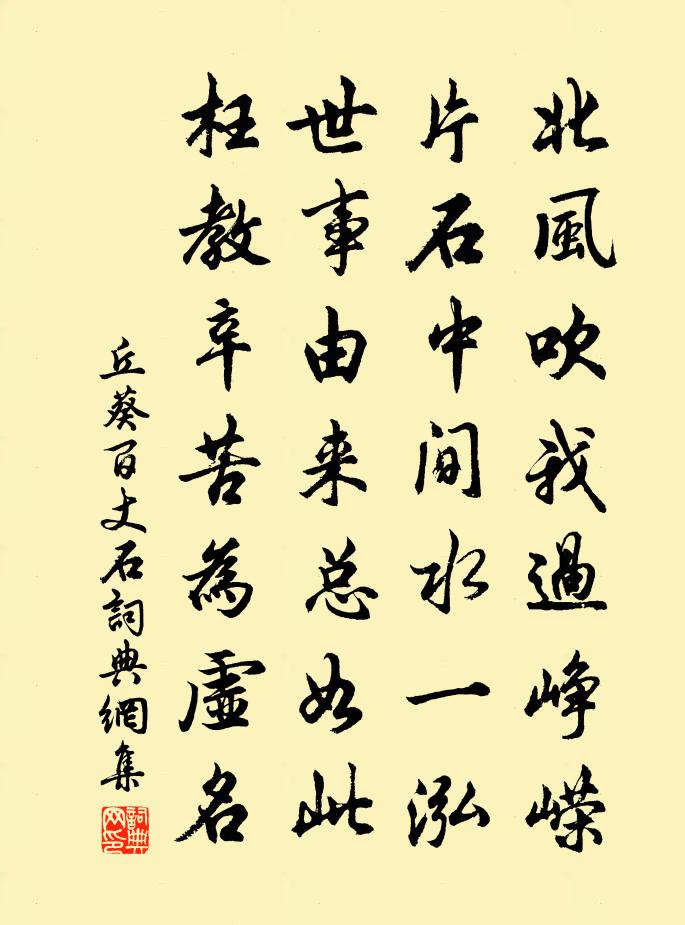 北風吹我過崢嶸
片石中間水一泓
世事由来总如此
枉教辛苦為虛名
丘葵百丈石詞典網集
詞典网印